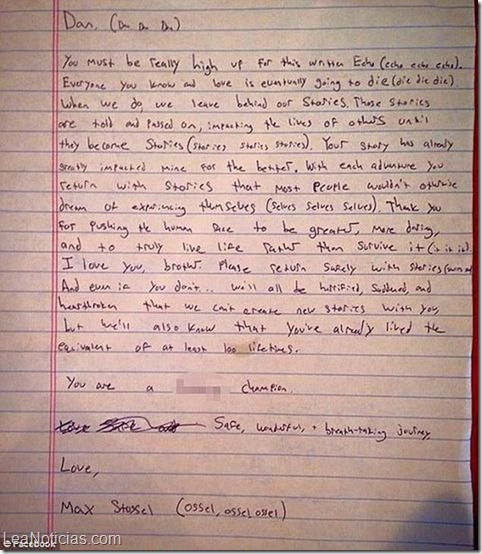 Dan, (Dan Dan Dan)
You must be really high up for this written Echo (echo echo echo).
Everyone you know and love is eventually going to die (die die die).
When we do, we leave behind our stories. Those stories
are told and passed on, impacting the lives of others until
they become Stories (stories stories stories). Your story has already
greatly impacted mine for the better. With each adventure you
return with stories that most people wouldn't otherwise
dream of experiencing themselves (selves selves selves). Thank you
for pushing the human race to be greater, more daring,
and to truly live life rather than survive it (it it it).
I love you, brother. Please return safely with stories
And even if you don't... we'll all be horrified, saddened, and
heartbroken that we can't create new stories with you,
but we'll also know that you've already lived the
equivalent of at least 100 lifetimes.
You are a champion.
Safe, wonderful, + breath-taking journey
Love,
Max Stossel (ossel, ossel ossel)
LeaNoticias.com
© Facebook